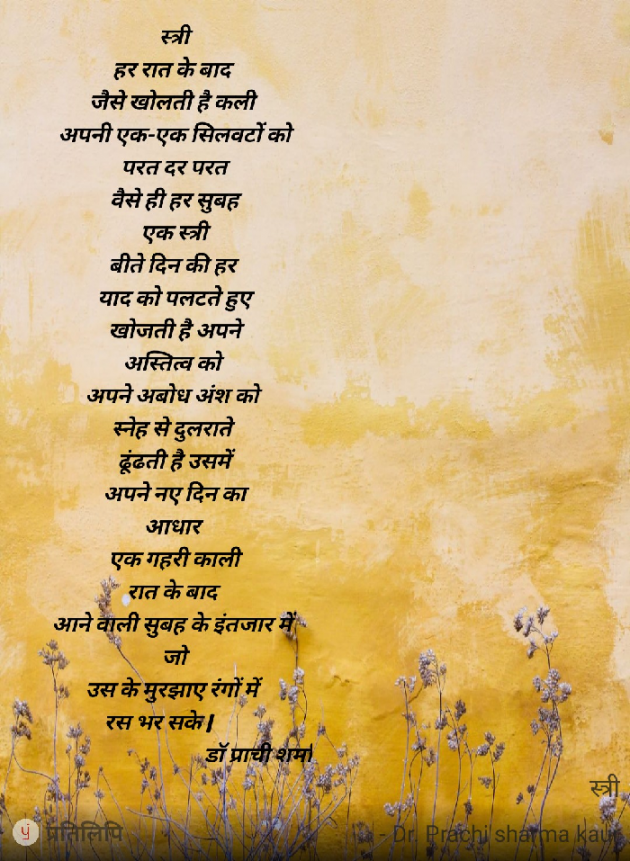 स्त्री
हर रात के बाद
जैसे खोलती है कली
अपनी एक-एक सिलवटों को
परत दर परत
वैसे ही हर सुबह
एक स्त्री
बीते दिन की हर
याद को पलटते हुए
खोजती है अपने
अस्तित्व को
अपने अबोध अंश को
स्नेह से दुलराते
ढूंढती है उसमें
अपने नए दिन का
आधार
एक गहरी काली
रात के बाद
आने वाली सुबह के इंतजार में
जो
उस के मुरझाए रंगों में
रस भर सके।
डॉ प्राची शर्मा
स्त्री
प्रतिलिपि
- Dr. Prachi sharma kaur